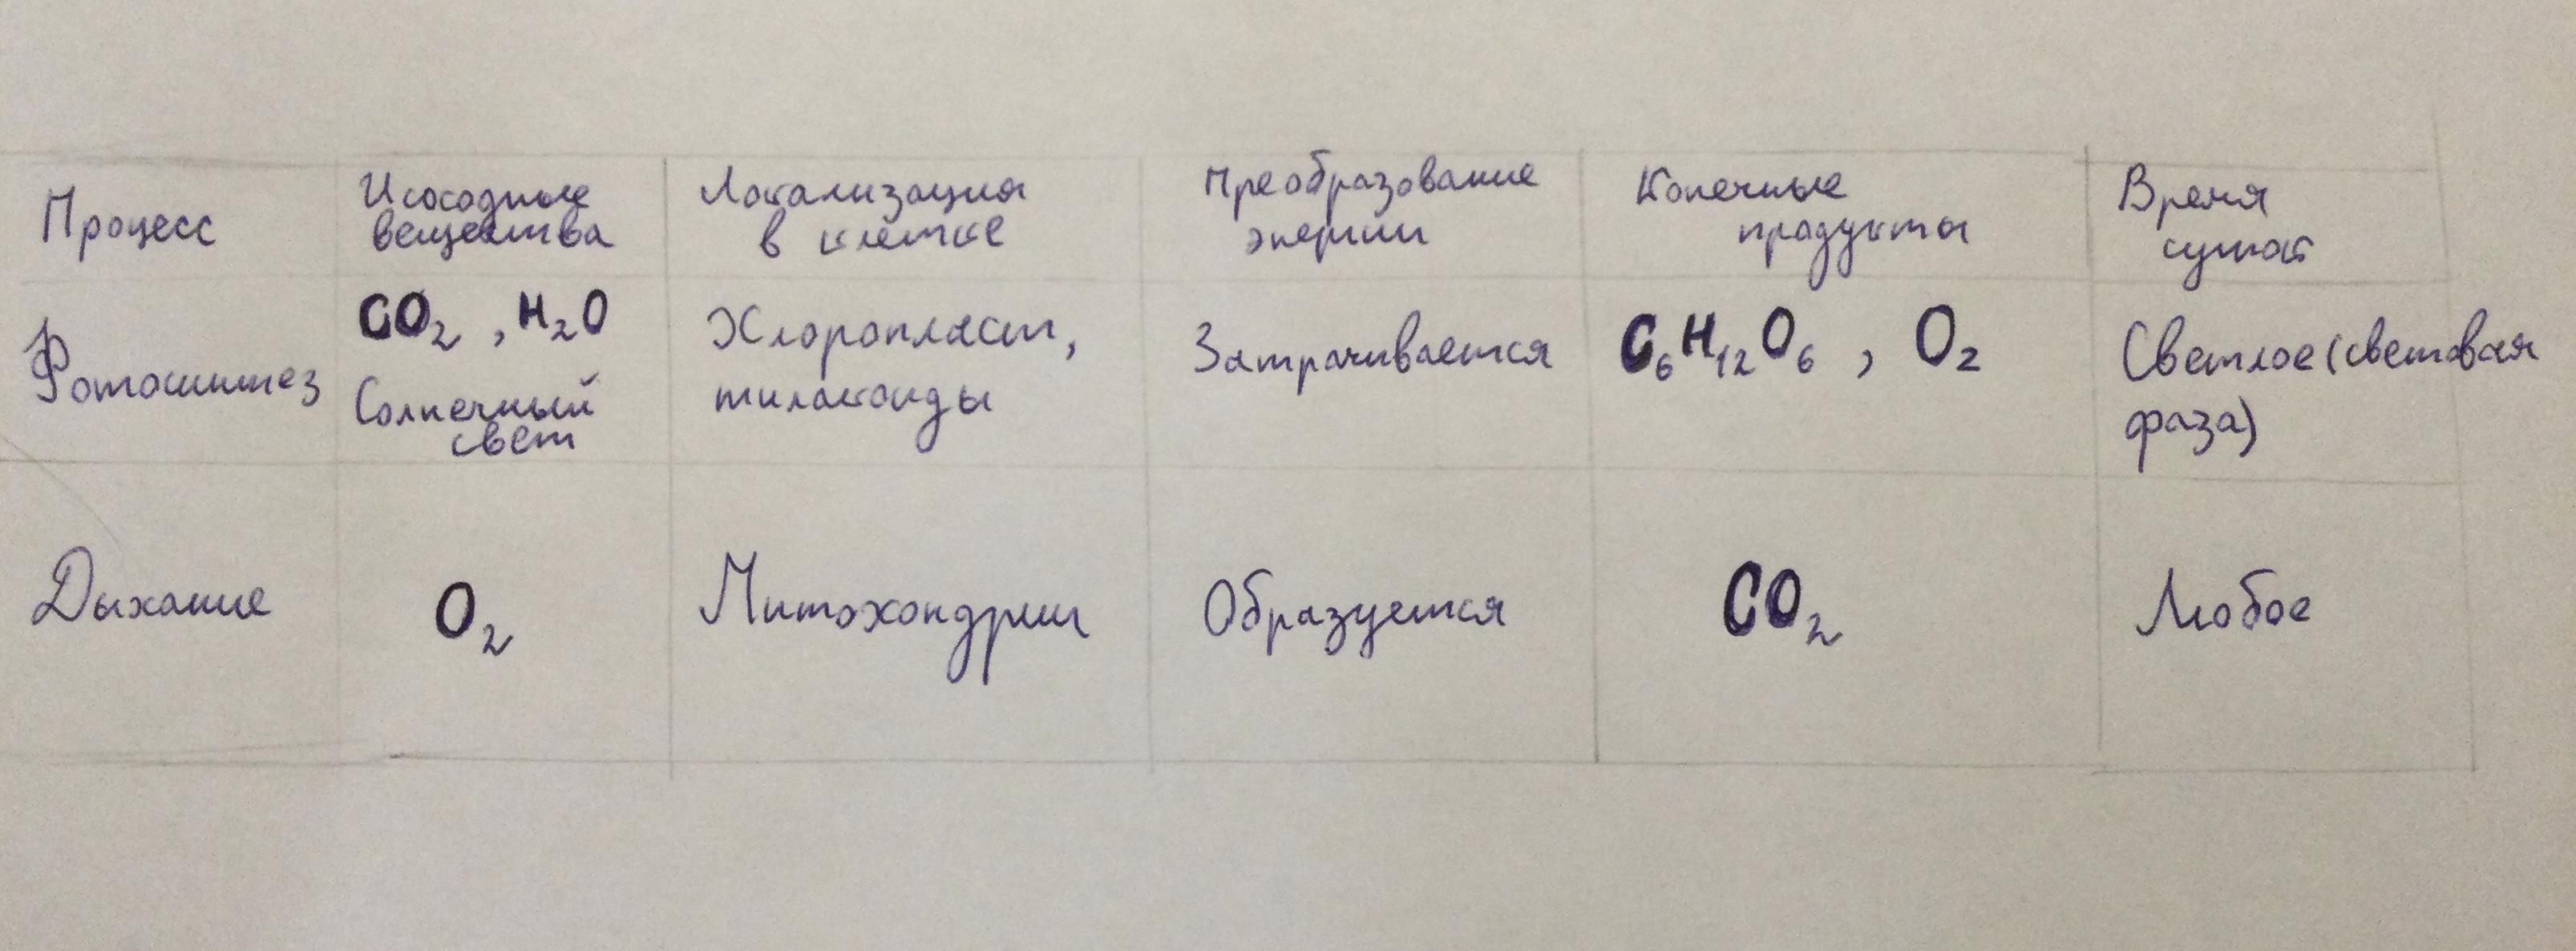 Процесс
Исосодные
вещества
Локализация
в клетке
Преобразование
энергии
Конечные
продукты
Время
суток
Фотосинтез
CO₂, H₂O
Солнечный
свет
Хлоропласт,
тилакоиды
Затрачивается
C₆H₁₂O₆, O₂
Светлое (световая
фаза)
Дыхание
O₂
Митохондрии
Образуется
CO₂
Любое